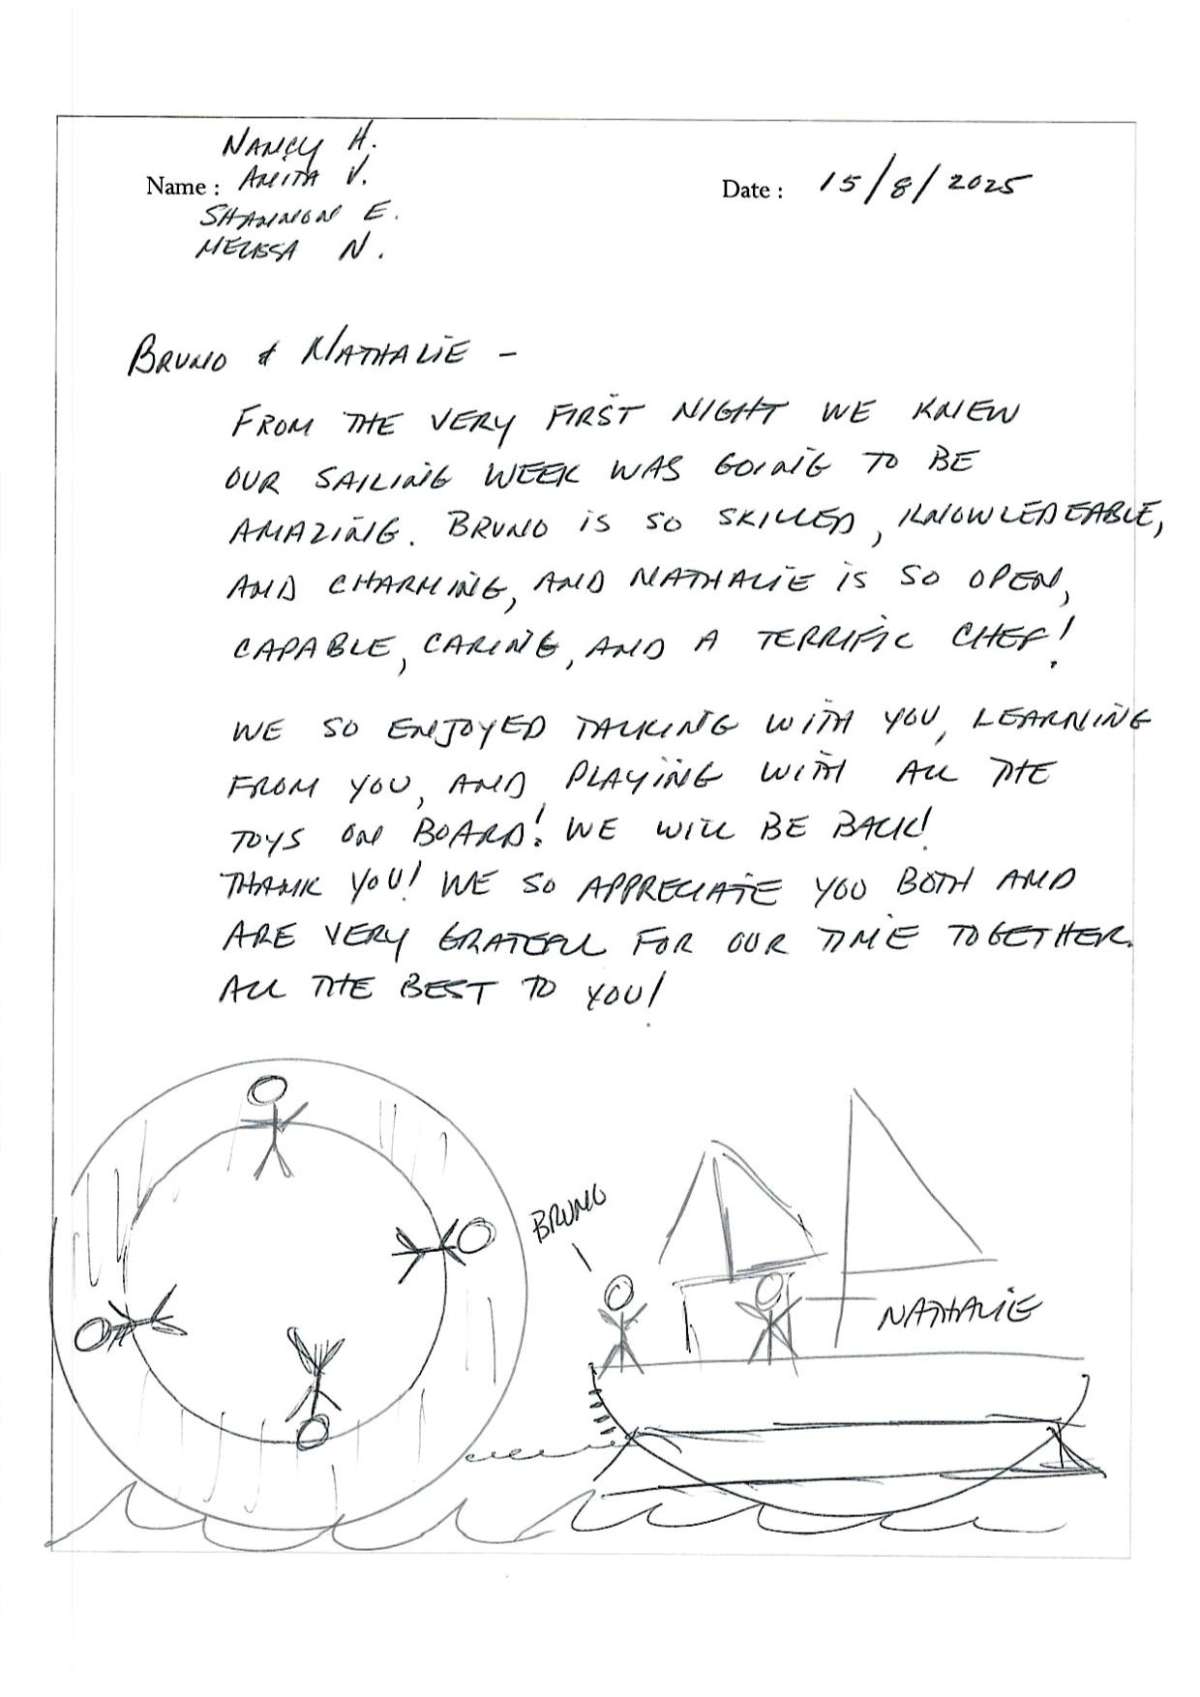 NANCY H.
Name : AMITA V.
SHANNON E.
MELISSA N.
Date : 15/8/2025
BRUNO & NATHALIE –
FROM THE VERY FIRST NIGHT WE KNEW
OUR SAILING WEEK WAS GOING TO BE
AMAZING. BRUNO IS SO SKILLED, KNOWLEDEABLE,
AND CHARMING, AND NATHALIE IS SO OPEN,
CAPABLE, CARING, AND A TERRIFIC CHEF!
WE SO ENJOYED TALKING WITH YOU, LEARNING
FROM YOU, AND PLAYING WITH ALL THE
TOYS ON BOARD! WE WILL BE BACK!
THANK YOU! WE SO APPRECIATE YOU BOTH AND
ARE VERY GRATEFUL FOR OUR TIME TOGETHER.
ALL THE BEST TO YOU!
BRUNO
NATHALIE